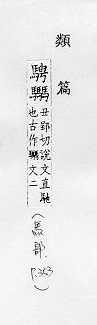 類篇
騁
丑郢切說文直馳
也古作文二
(馬部 P.363)